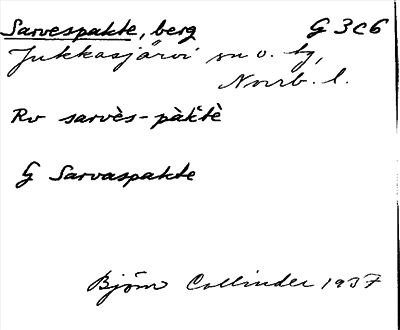 Sarvespakte, berg G 3c6
Jukkasjärvi sn o. tg,
Norrb. l.
Rv sarvès-pàk̆tè
G Sarvaspakte
Björn Collinder 1937